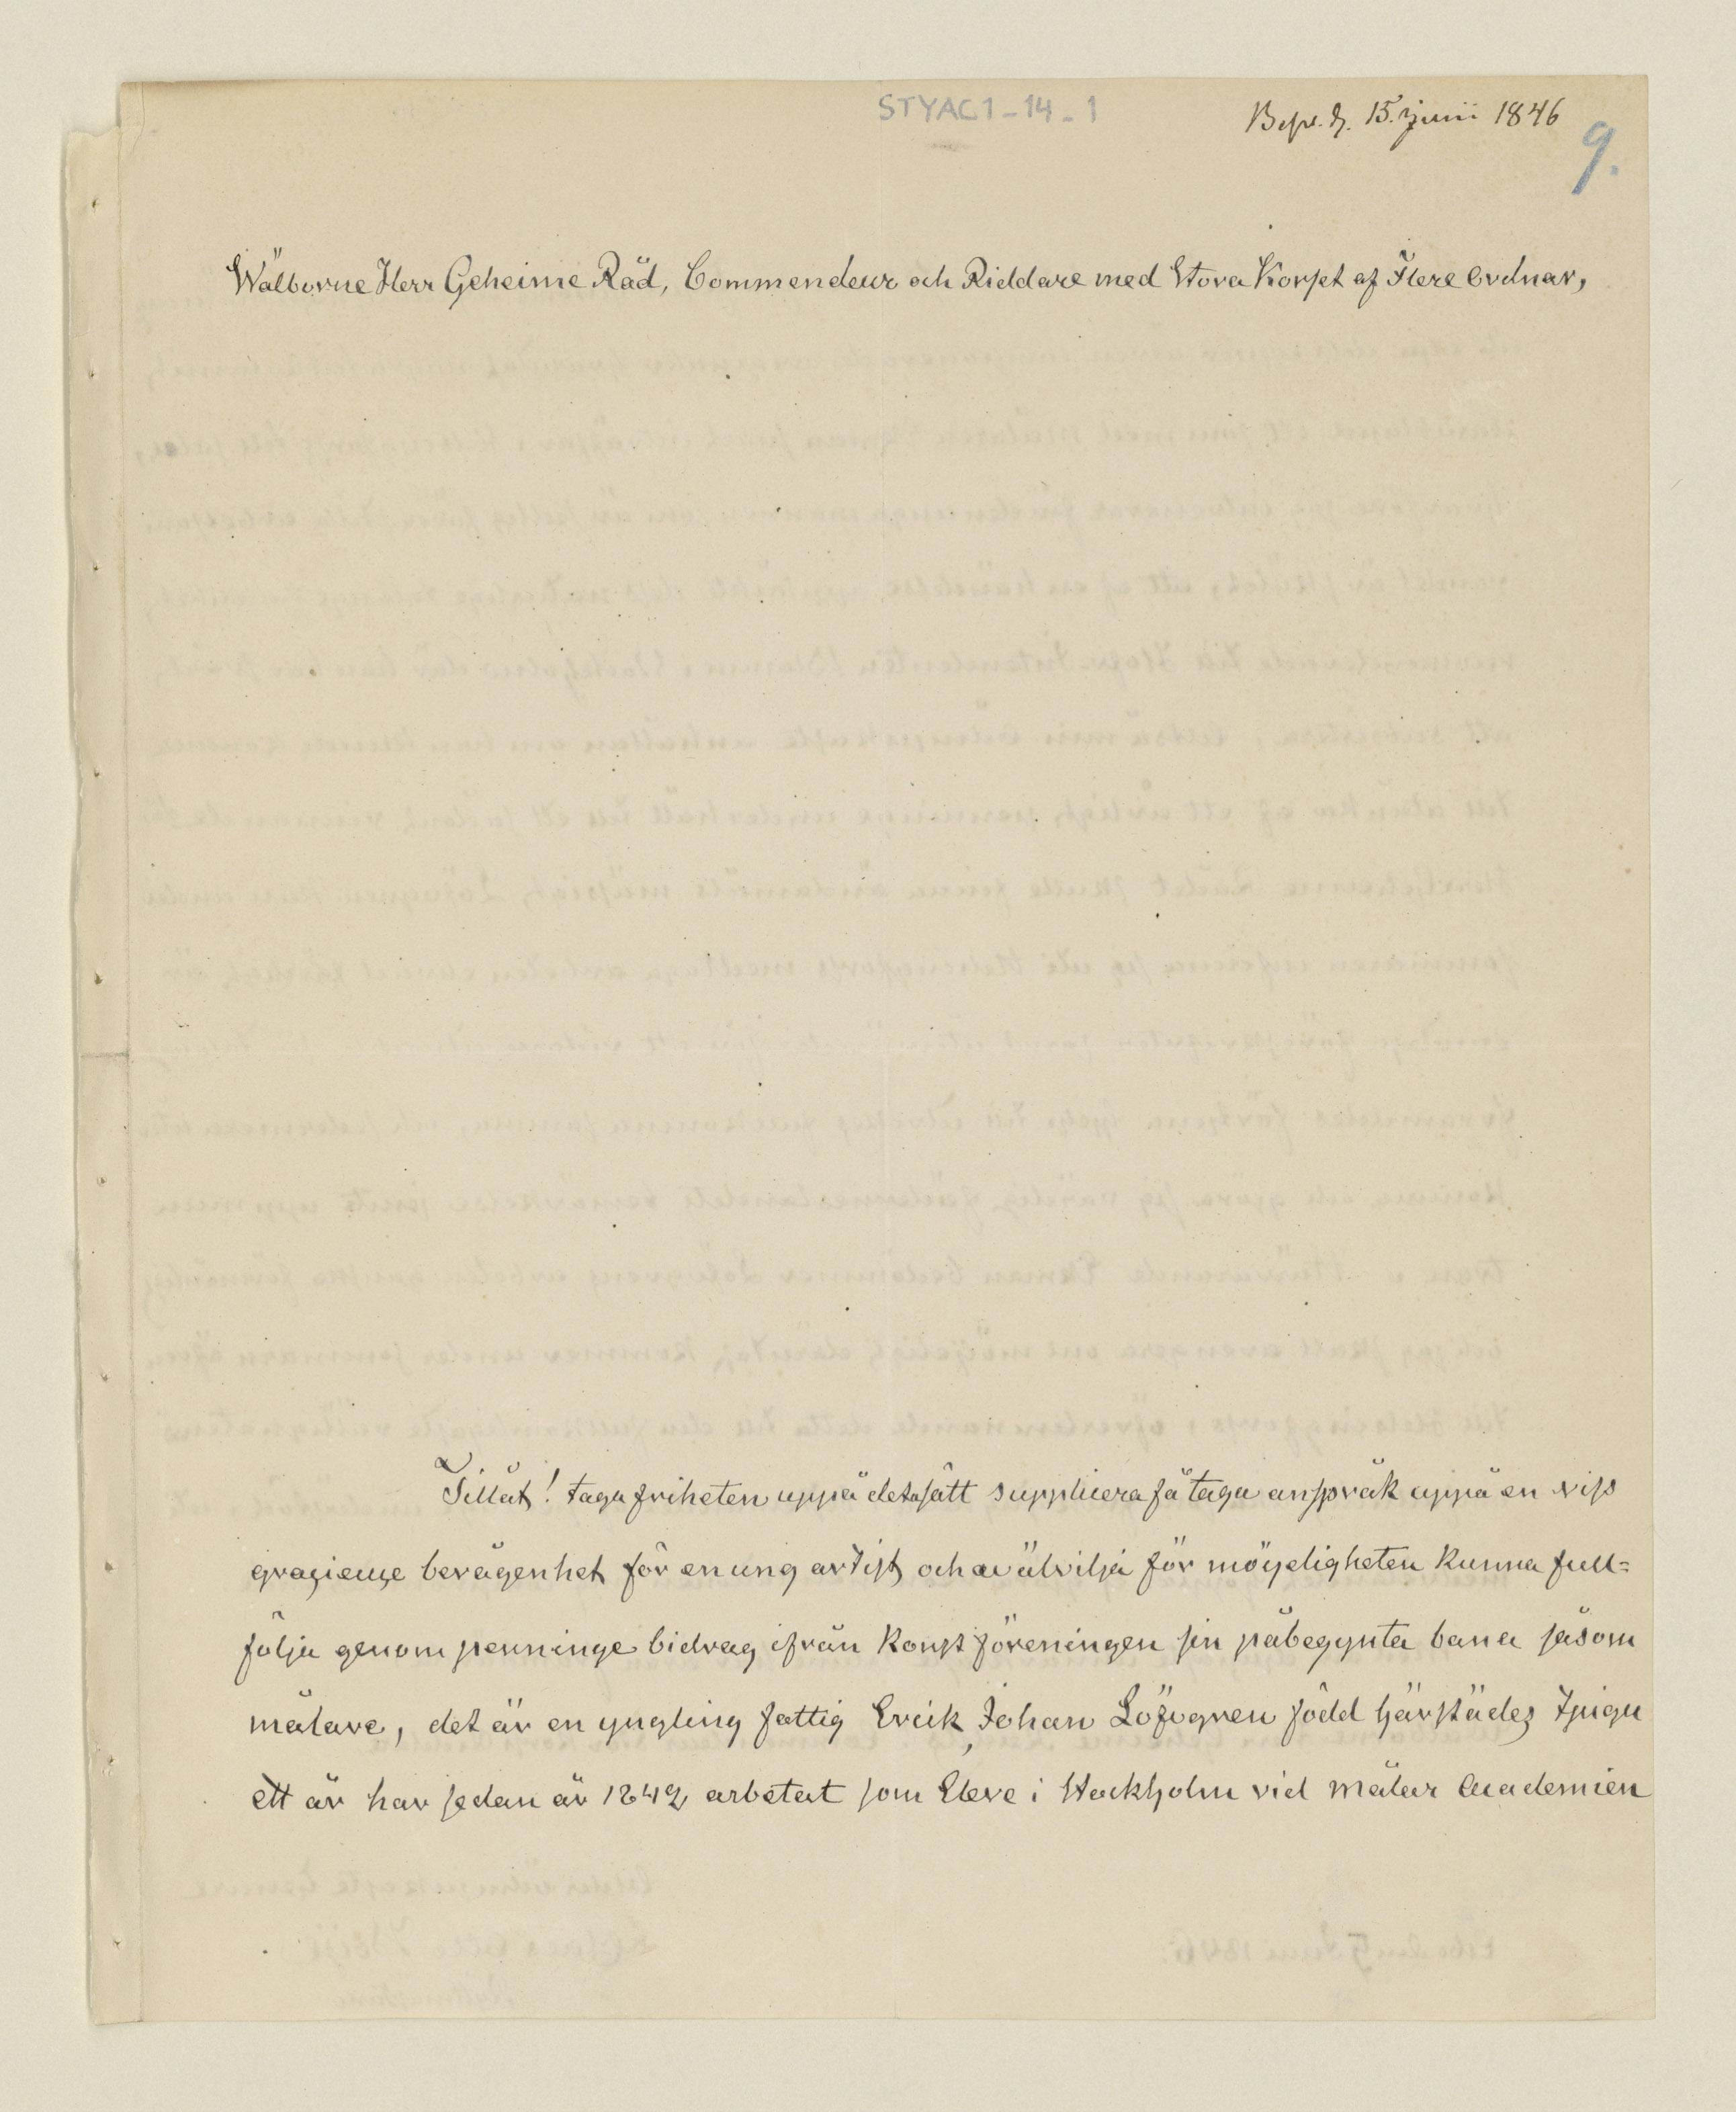 STYAC1-14-1
Besv. d. 15. junii 1846
9.
Wälborne Herr Geheime Råd, Commendeur och Riddare med Stora Korset af Flere Ordnar,
Tillåt! taga friheten uppå detta sätt supplicera få taga anspråk uppå en viss
benägenhet för en ung artist och välvilja för möyeligheten kunna full=
följa genom penninge bidrag ifrån Konst föreningen sin påbegynta bana såsom
målare, det är en yngling fattig Erik Johan Löfvgren född härstädes tjugu
ett år har sedan år 1842 arbetat som Eleve i Stockholm vid Målar Academien